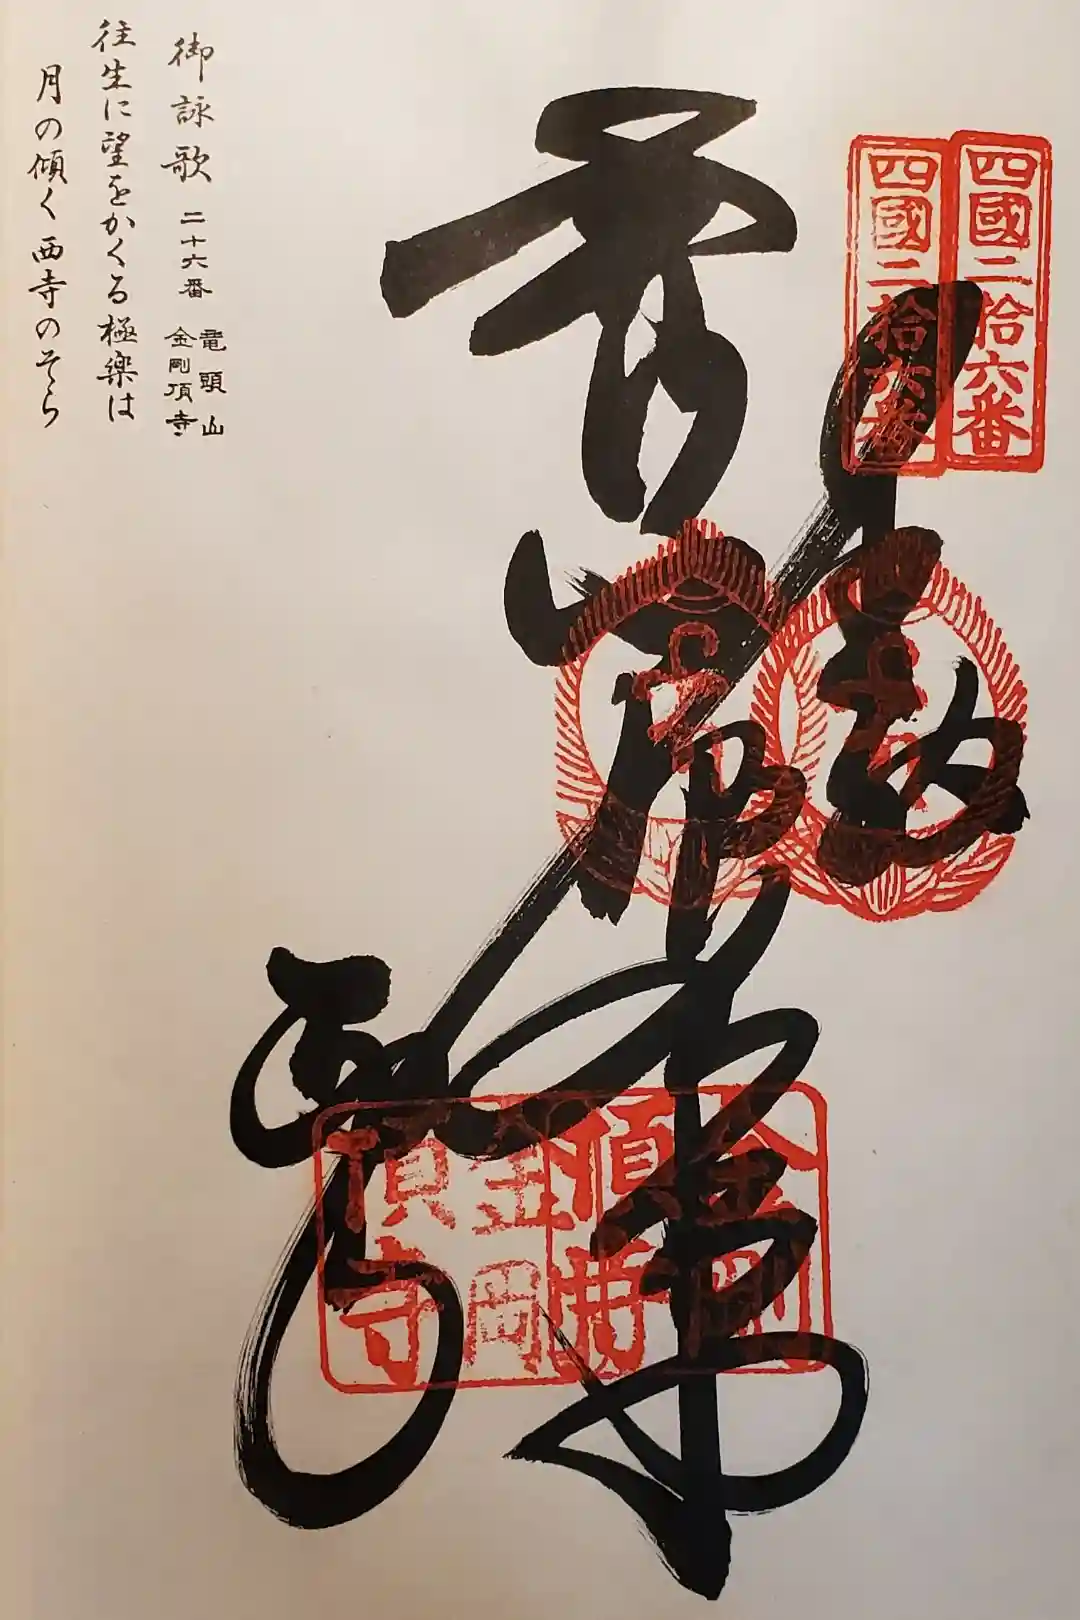 四國二拾六番
四國二拾六番
奉納
金剛頂寺
金剛頂寺
西寺
御詠歌 二十六番 竜頭山
金剛頂寺
往生に望をかくる極楽は
月の傾く西寺のそら